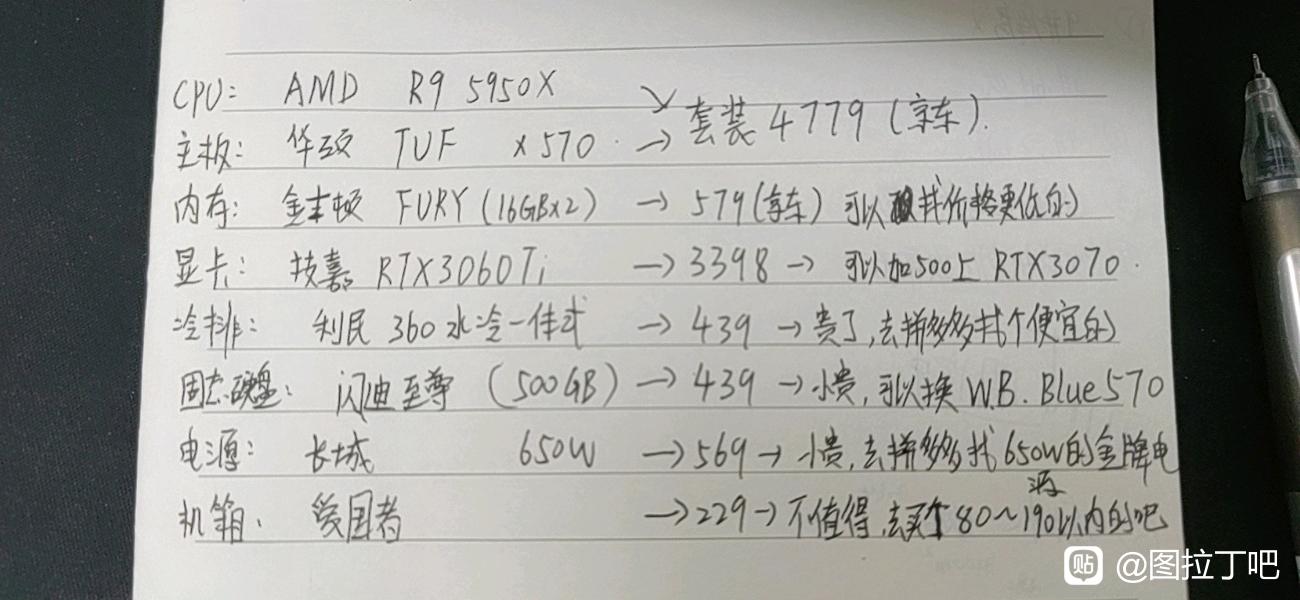 CPU: AMD R9 5950X
套装 4779 (京东).
主板: 华硕 TUF x570 →
内存: 金士顿 FURY (16GBx2) → 579 (京东) 可以找价格更低的
显卡: 技嘉 RTX3060Ti → 3398 → 可以加500上 RTX3070.
冷排: 利民 360水冷一体式 → 439 → 贵了,去拼多多找个便宜的
固态硬盘: 闪迪至尊 (500GB) → 439 → 小贵,可以换 W.B. Blue570
电源: 长城 650W → 569 → 小贵,去拼多多找650W的金牌电
源
机箱. 爱国者 → 229 → 不值得,去买个80~190以内的吧
贴 @图拉丁吧